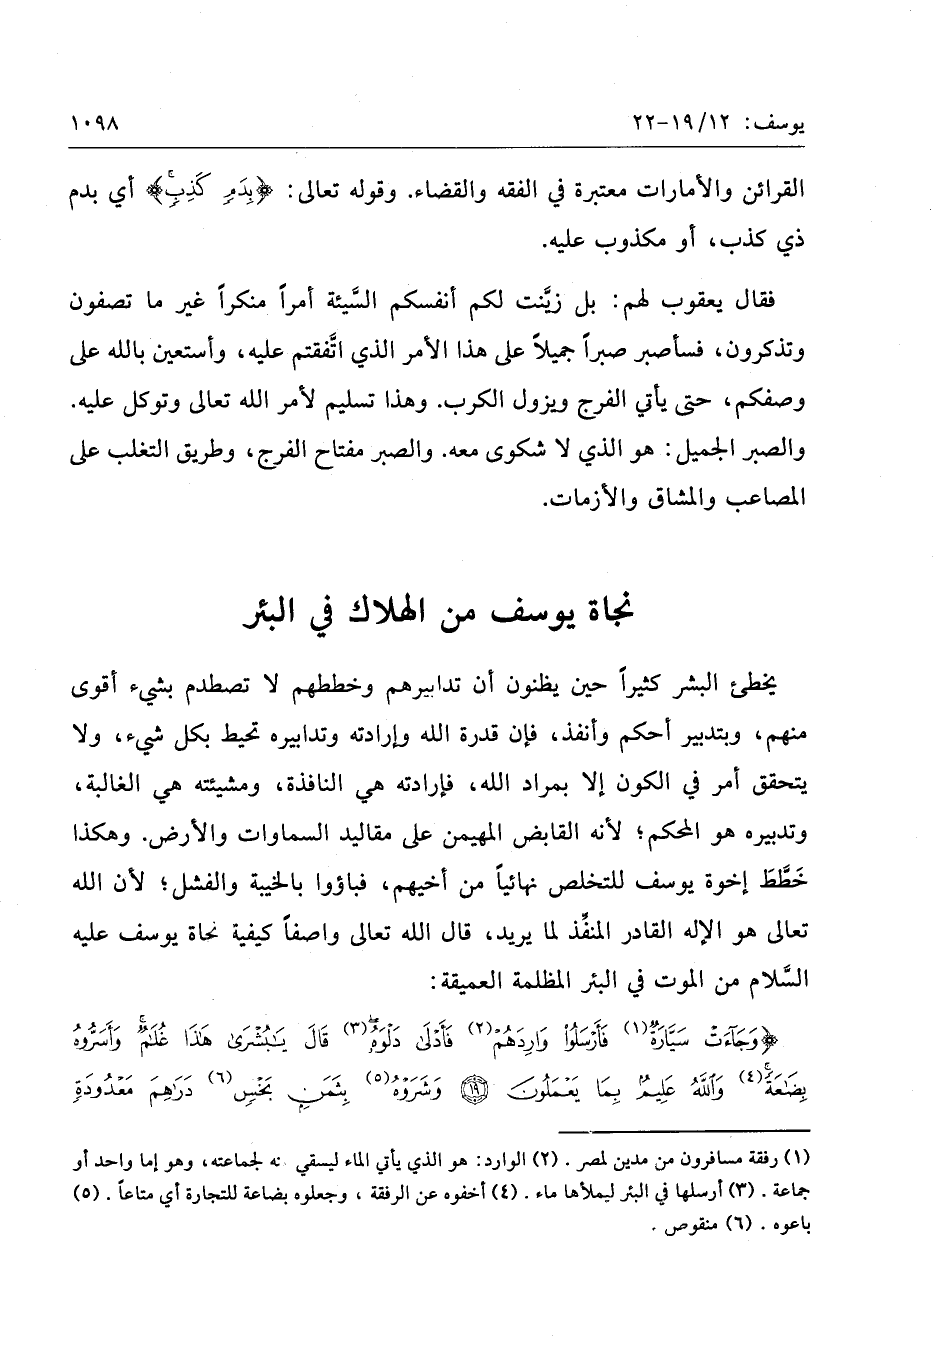 يوسف: ١٢/ ١٩-٢٢ ١٠٩٨
القرائن والأمارات معتبرة في الفقه والقضاء. وقوله تعالى: ﴿بِدَمٍ كَذِبٍۚ﴾ أي بدم
ذي كذب، أو مكذوب عليه.
فقال يعقوب لهم: بل زيَّنت لكم أنفسكم السَّيئة أمراً منكراً غير ما تصفون
وتذكرون، فسأصبر صبراً جميلاً على هذا الأمر الذي اتَّفقتم عليه، وأستعين بالله على
وصفكم، حتى يأتي الفرج ويزول الكرب. وهذا تسليم لأمر الله تعالى وتوكل عليه.
والصبر الجميل: هو الذي لا شكوى معه. والصبر مفتاح الفرج، وطريق التغلب على
المصاعب والمشاق والأزمات.
نجاة يوسف من الهلاك في البئر
يخطئ البشر كثيراً حين يظنون أن تدابيرهم وخططهم لا تصطدم بشيء أقوى
منهم، وبتدبير أحكم وأنفذ، فإن قدرة الله وإرادته وتدابيره تحيط بكل شيء، ولا
يتحقق أمر في الكون إلا بمراد الله، فإرادته هي النافذة، ومشيئته هي الغالبة،
وتدبيره هو المحكم؛ لأنه القابض المهيمن على مقاليد السماوات والأرض. وهكذا
خَطَّطَ إخوة يوسف للتخلص نهائياً من أخيهم، فباؤوا بالخيبة والفشل؛ لأن الله
تعالى هو الإله القادر المنفِّذ لما يريد، قال الله تعالى واصفاً كيفية نجاة يوسف عليه
السَّلام من الموت في البئر المظلمة العميقة:
﴿وَجَآءَتْ سَيَّارَةٌ(١) فَأَرْسَلُوا۟ وَارِدَهُمْ(٢) فَأَدْلَىٰ دَلْوَهُۥۖ(٣) قَالَ يَـٰبُشْرَىٰ هَـٰذَا غُلَـٰمٌۚ وَأَسَرُّوهُ
بِضَـٰعَةًۚ(٤) وَٱللَّهُ عَلِيمٌۢ بِمَا يَعْمَلُونَ ١٩ وَشَرَوْهُ(٥) بِثَمَنٍۭ بَخْسٍ(٦) دَرَٰهِمَ مَعْدُودَةٍ
(١) رفقة مسافرون من مدين لمصر. (٢) الوارد: هو الذي يأتي الماء ليسقي نه لجماعته، وهو إما واحد أو
جماعة. (٣) أرسلها في البئر ليملأها ماء. (٤) أخفوه عن الرفقة، وجعلوه بضاعة للتجارة أي متاعاً. (٥)
باعوه. (٦) منقوص.